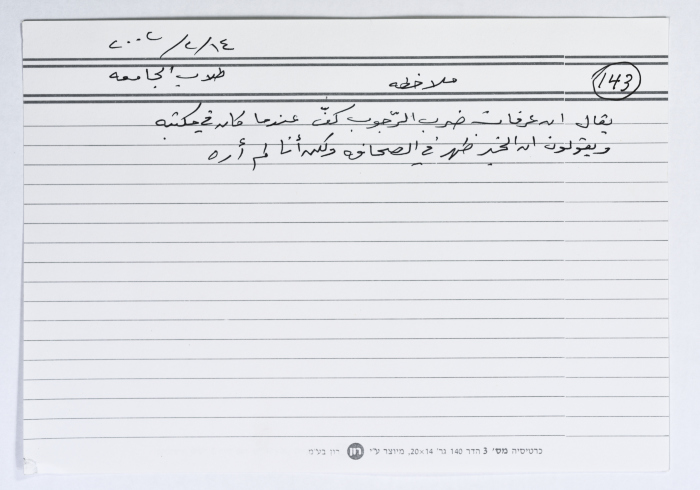 ٢٠٠٢/٢/١٤
143 ملاحظه طلاب الجامعه
يقال ان عرفات ضرب الرّجوب كفّ عندما كان في مكتبه
ويقولون ان الخبر ظهر في الصحافه ولكن أنا لم أره
כרטיסיה מס׳ 3 הדר 140 גר׳ 20×14, מיוצר ע״י רון רון בע״מ